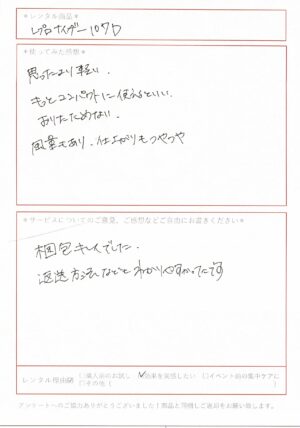 ＊レンタル商品＊
レプロナイザー107D
＊使ってみた感想＊
思ったより軽い.
もっとコンパクトに使えるといい.
おりたためない.
風量もあり、仕上がりもつやつや
＊サービスについてのご意見、ご感想などご自由にお書きください＊
梱包キレイでした.
返送方法などもわかりやすかったです
レンタル理由 □購入前のお試し ☑効果を実感したい □イベント前の集中ケアに
□その他（ ）
アンケートへのご協力ありがとうございました！商品と同梱しご返却をお願い致します。